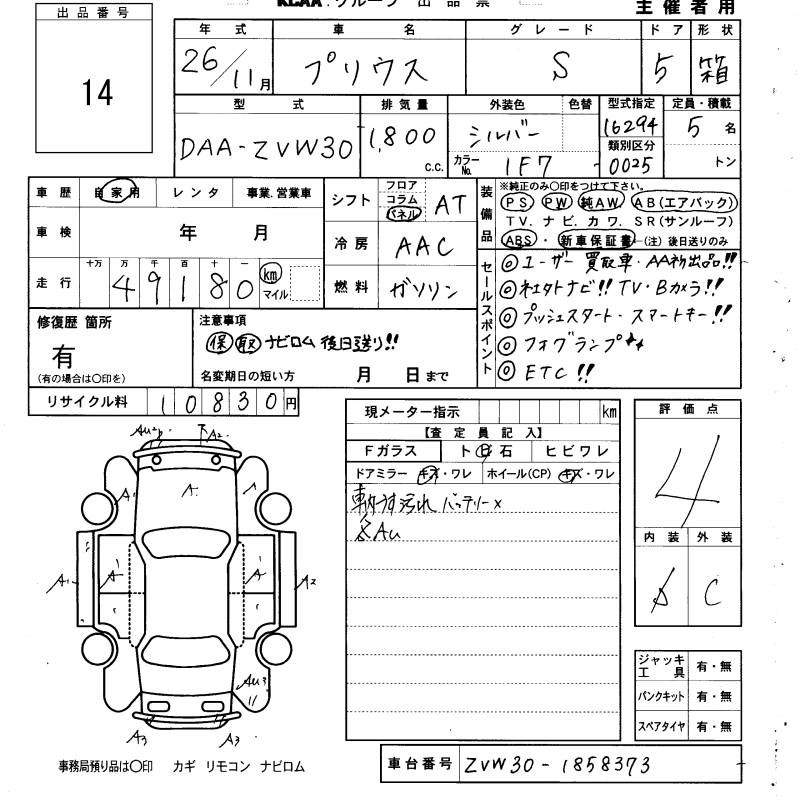 KCAA グループ 出品票 主催者用
出品番号
14
年式 車名 グレード ドア 形状
26/11月 プリウス S 5 箱
型式 排気量 外装色 色替 型式指定 定員・積載
DAA-ZVW30 1,800 c.c. シルバー 16294 5名
カラーNo. 1F7 類別区分 0025 トン
車歴 自家用 レンタ 事業.営業車
車検 年 月
走行 十万 万 千 百 十 一
49180 km マイル
シフト フロア コラム パネル AT
冷房 AAC
燃料 ガソリン
装備品 ※純正のみ○印をつけて下さい。
PS PW 純AW AB(エアバック)
TV. ナビ. カワ. SR(サンルーフ)
ABS・新車保証書 (注)後日送りのみ
セールスポイント
◎ユーザー買取車・AA初出品!!
◎社外ナビ!! TV・Bカメラ!!
◎プッシュスタート・スマートキー!!
◎フォグランプ
◎ETC!!
修復歴 箇所
有
(有の場合は○印を)
注意事項
保 取 ナビロム 後日送り!!
名変期日の短い方 月 日まで
リサイクル料 10830円
現メーター指示 km
【査定員記入】
Fガラス ト 飛石 ヒビワレ
ドアミラー キズ・ワレ ホイール(CP) キズ・ワレ
バッテリーx
各AU
評価点
4
内装 外装
C
ジャッキ工具 有・無
パンクキット 有・無
スペアタイヤ 有・無
A2
A1
A
A1
A2
AU3
A3 A3
事務局預り品は○印 カギ リモコン ナビロム
車台番号 ZVW30-1858373